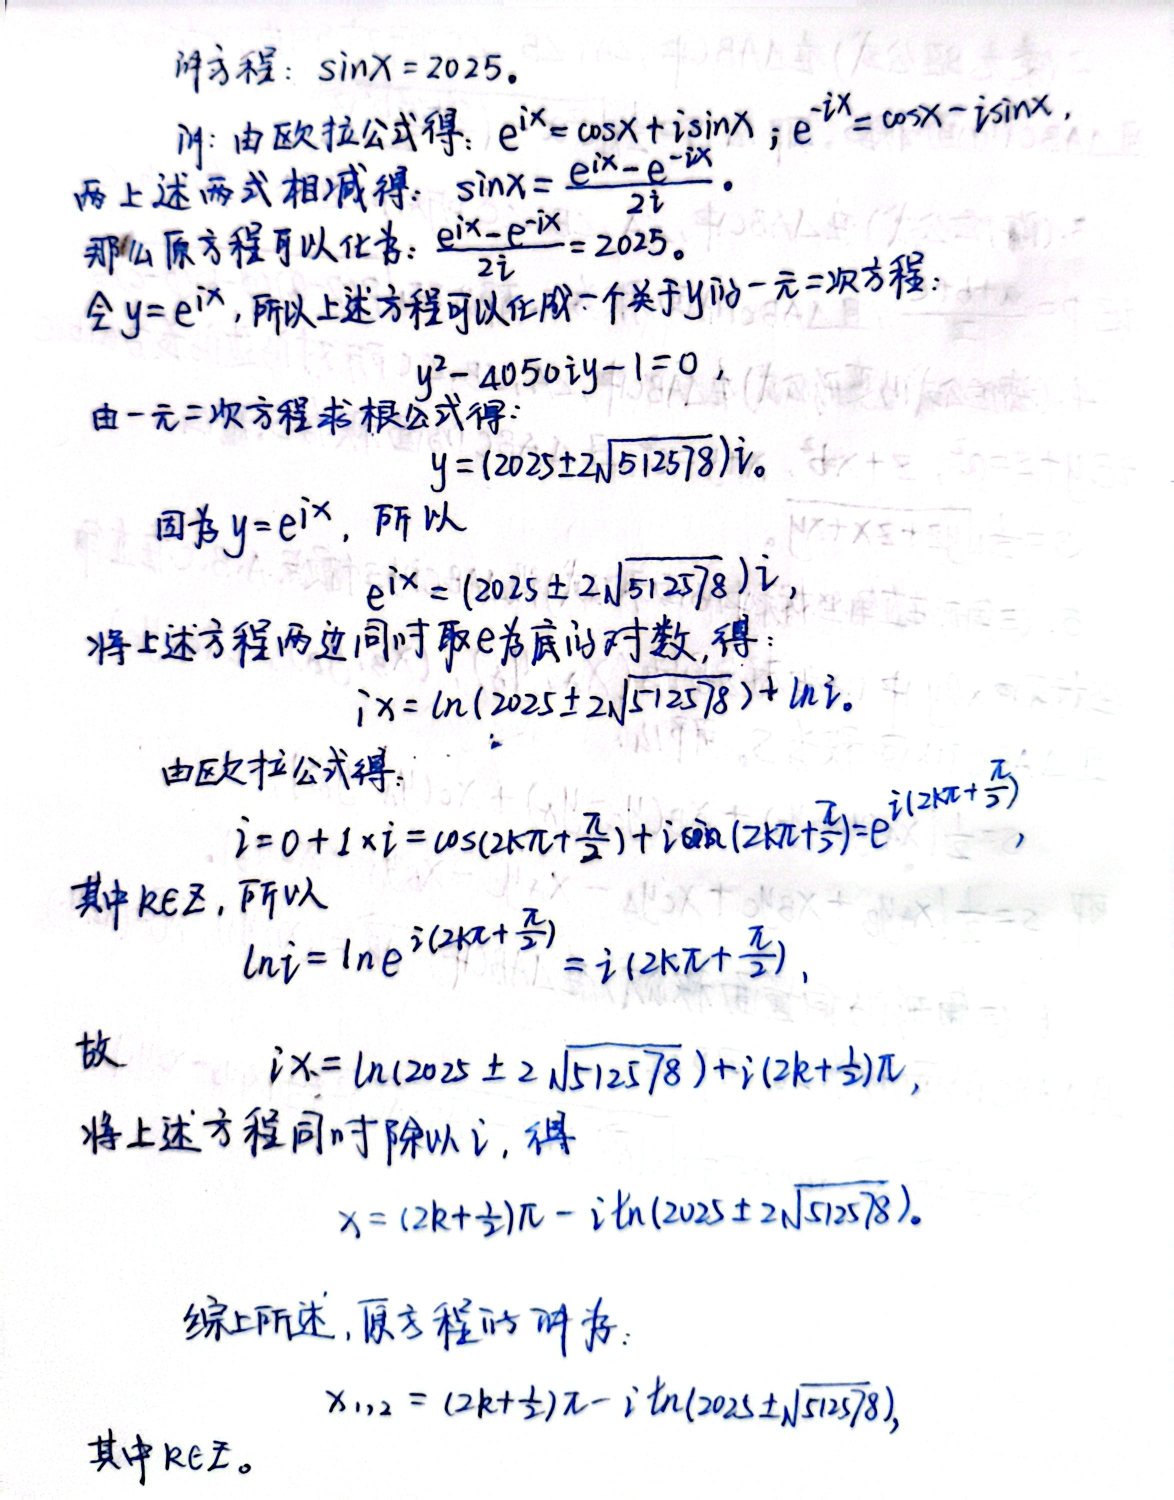 解方程：sinx=2025。
解：由欧拉公式得：e^{ix}=cosx+isinx；e^{-ix}=cosx-isinx，
两上述两式相减得：sinx=\frac{e^{ix}-e^{-ix}}{2i}。
那么原方程可以化为：\frac{e^{ix}-e^{-ix}}{2i}=2025。
令y=e^{ix}，所以上述方程可以化成一个关于y的一元二次方程：
y²-4050iy-1=0，
由一元二次方程求根公式得：
y=(2025±2√512578)i。
因为y=e^{ix}，所以
e^{ix}=(2025±2√512578)i，
将上述方程两边同时取e为底的对数，得：
ix=ln(2025±2√512578)+lni。
由欧拉公式得：
i=0+1×i=cos(2kπ+\frac{π}{2})+isin(2kπ+\frac{π}{2})=e^{i(2kπ+\frac{π}{2})}，
其中k∈Z，所以
lni=lne^{i(2kπ+\frac{π}{2})}=i(2kπ+\frac{π}{2})，
故 ix=ln(2025±2√512578)+i(2k+\frac{1}{2})π，
将上述方程同时除以i，得
x=(2k+\frac{1}{2})π-iln(2025±2√512578)。
综上所述，原方程的解为：
x_{1,2}=(2k+\frac{1}{2})π-iln(2025±√512578)，
其中k∈Z。